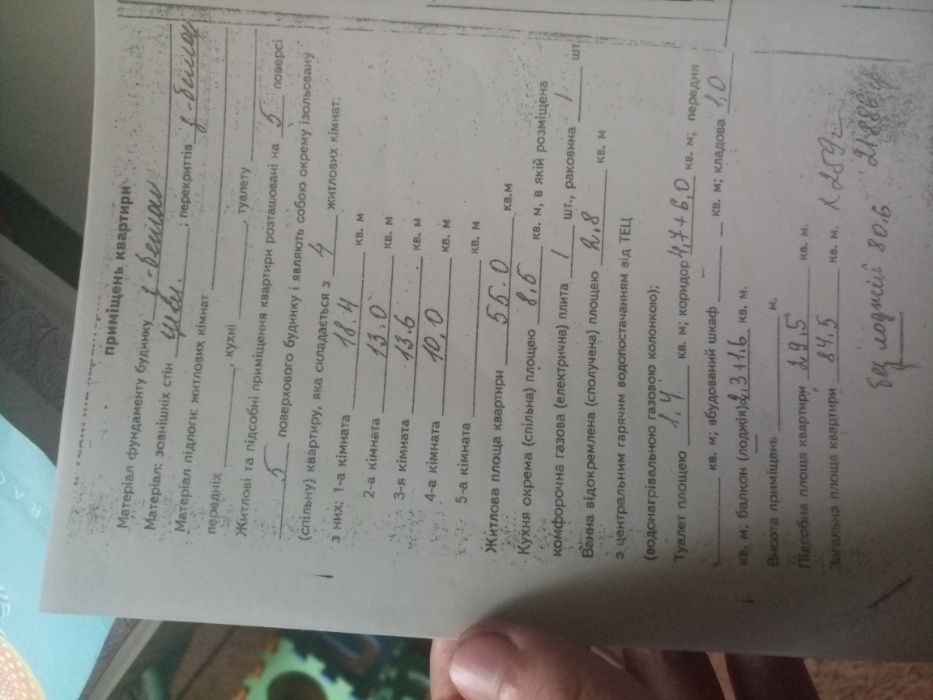 приміщень квартири
Матеріал фундаменту будинку з-бетон
Матеріал: зовнішніх стін цегл. ; перекриття з-бетон
Матеріал підлоги: житлових кімнат
передніх , кухні , туалету
Житлові та підсобні приміщення квартири розташовані на 5 поверсі
5 поверхового будинку і являють собою окрему ізольовану
(спільну) квартиру, яка складається з 4 житлових кімнат:
з них: 1-а кімната 18.4 кв. м
2-а кімната 13,0 кв. м
3-я кімната 13.6 кв. м
4-а кімната 10,0 кв. м
5-а кімната кв. м
Житлова площа квартири 55.0 кв.м
Кухня окрема (спільна) площею 8.6 кв. м, в якій розміщена
комфорочна газова (електрична) плита 1 шт., раковина 1 шт
Ванна відокремлена (сполучена) площею 2,8 кв. м
з центральним гарячим водопостачанням від ТЕЦ
(водонагрівальною газовою колонкою);
Туалет площею 1,4 кв. м; коридор 4,7+6,0 кв. м; передня
кв. м; вбудований шкаф кв. м; кладова 1,0
кв. м; балкон (лоджія) 2,3+1.6 кв. м.
Висота приміщень м.
Підсобна площа квартири 29,5 кв. м.
Загальна площа квартири 84.5 кв. м.
без лоджій 80.6